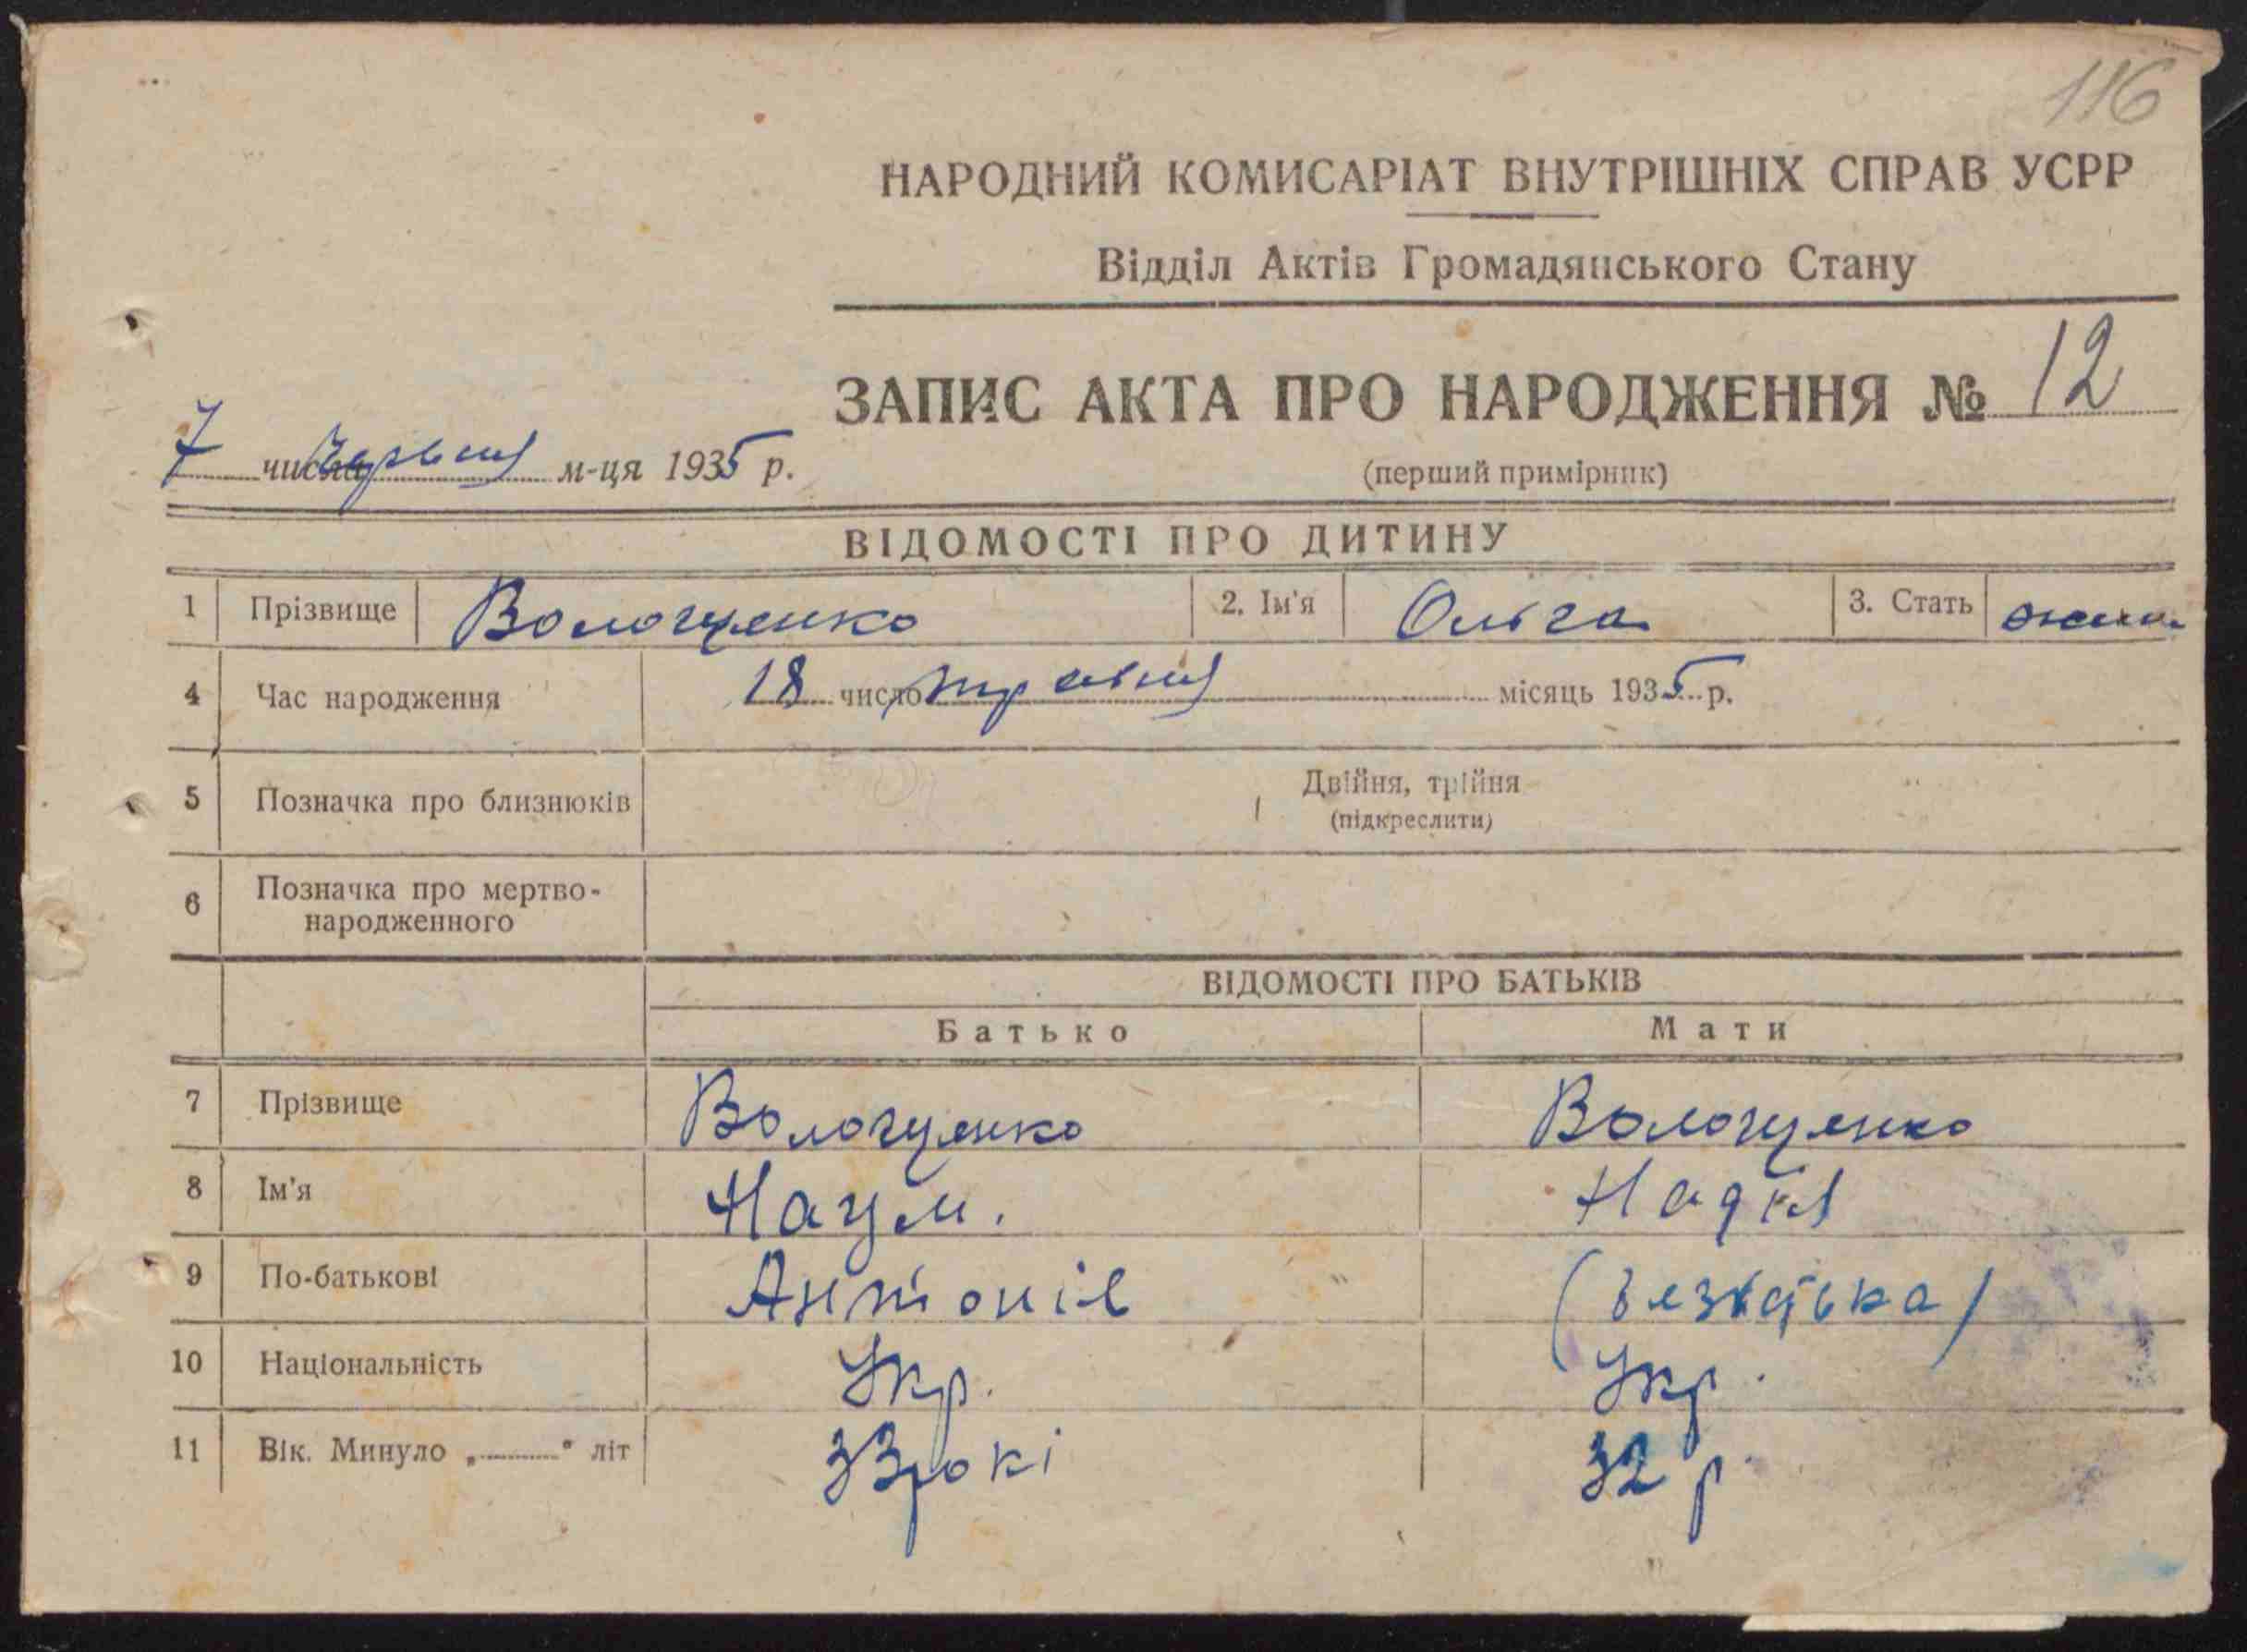 116
НАРОДНИЙ КОМИСАРІАТ ВНУТРІШНІХ СПРАВ УСРР
Відділ Актів Громадянського Стану
ЗАПИС АКТА ПРО НАРОДЖЕННЯ № 12
7 числа червня м-ця 1935 р.
(перший примірник)
ВІДОМОСТІ ПРО ДИТИНУ
1 Прізвище Вологуленко 2. Ім'я Ольга 3. Стать жин.
4 Час народження 18 число травня місяць 1935 р.
5 Позначка про близнюків Двійня, трійня
(підкреслити)
6 Позначка про мертво-
народженного
ВІДОМОСТІ ПРО БАТЬКІВ
Батько Мати
7 Прізвище
8 Ім'я Наум. Надія
9 По-батькові Антонів (безбатька)
10 Національність Укр. Укр.
11 Вік. Минуло „ " літ 33 рокі 32 р.